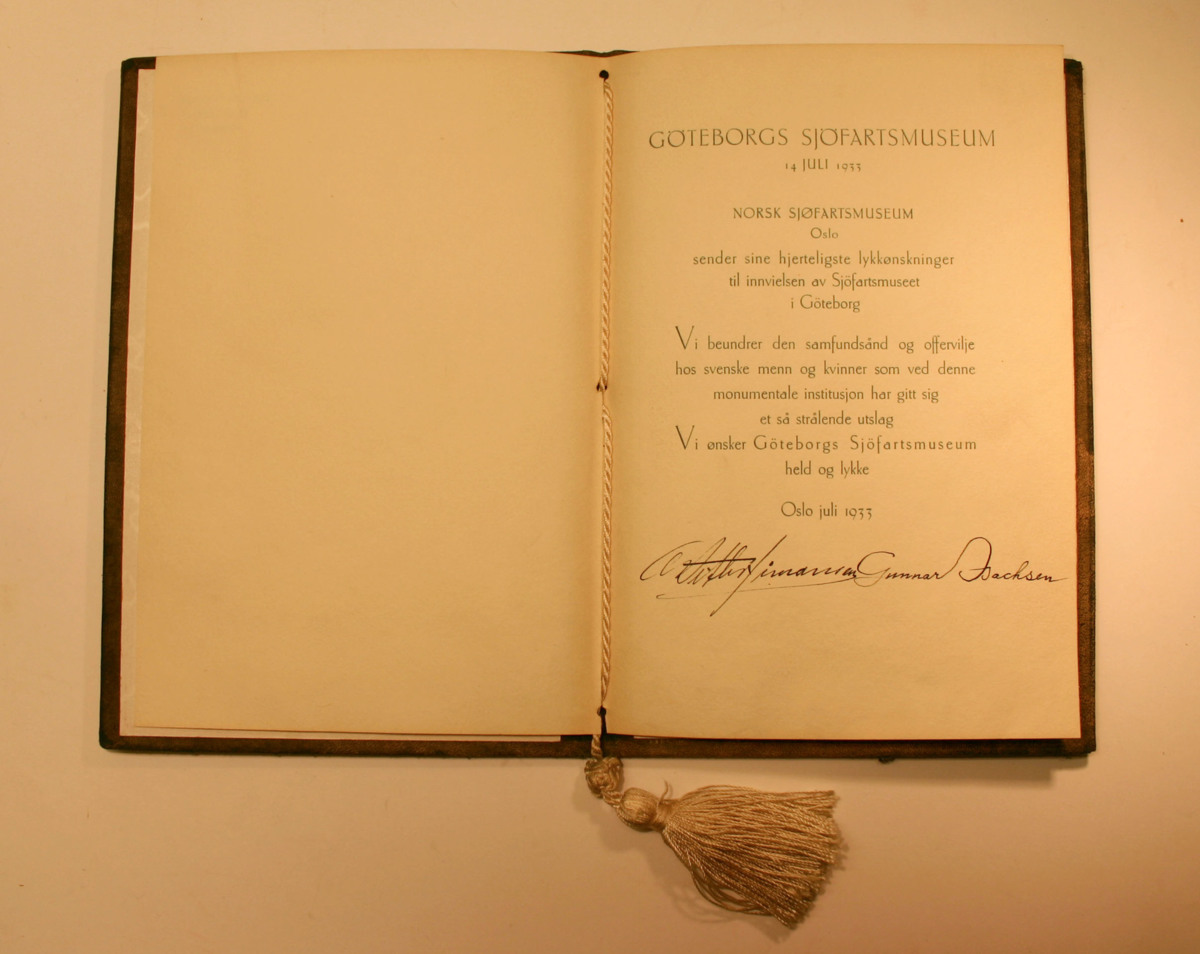 GÖTEBORGS SJÖFARTSMUSEUM
14 JULI 1933
NORSK SJØFARTSMUSEUM
Oslo
sender sine hjerteligste lykkønskninger
til innvielsen av Sjöfartsmuseet
i Göteborg
Vi beundrer den samfundsånd og offervilje
hos svenske menn og kvinner som ved denne
monumentale institusjon har gitt sig
et så strålende utslag
Vi ønsker Göteborgs Sjöfartsmuseum
held og lykke
Oslo juli 1933
Gunnar Isachsen